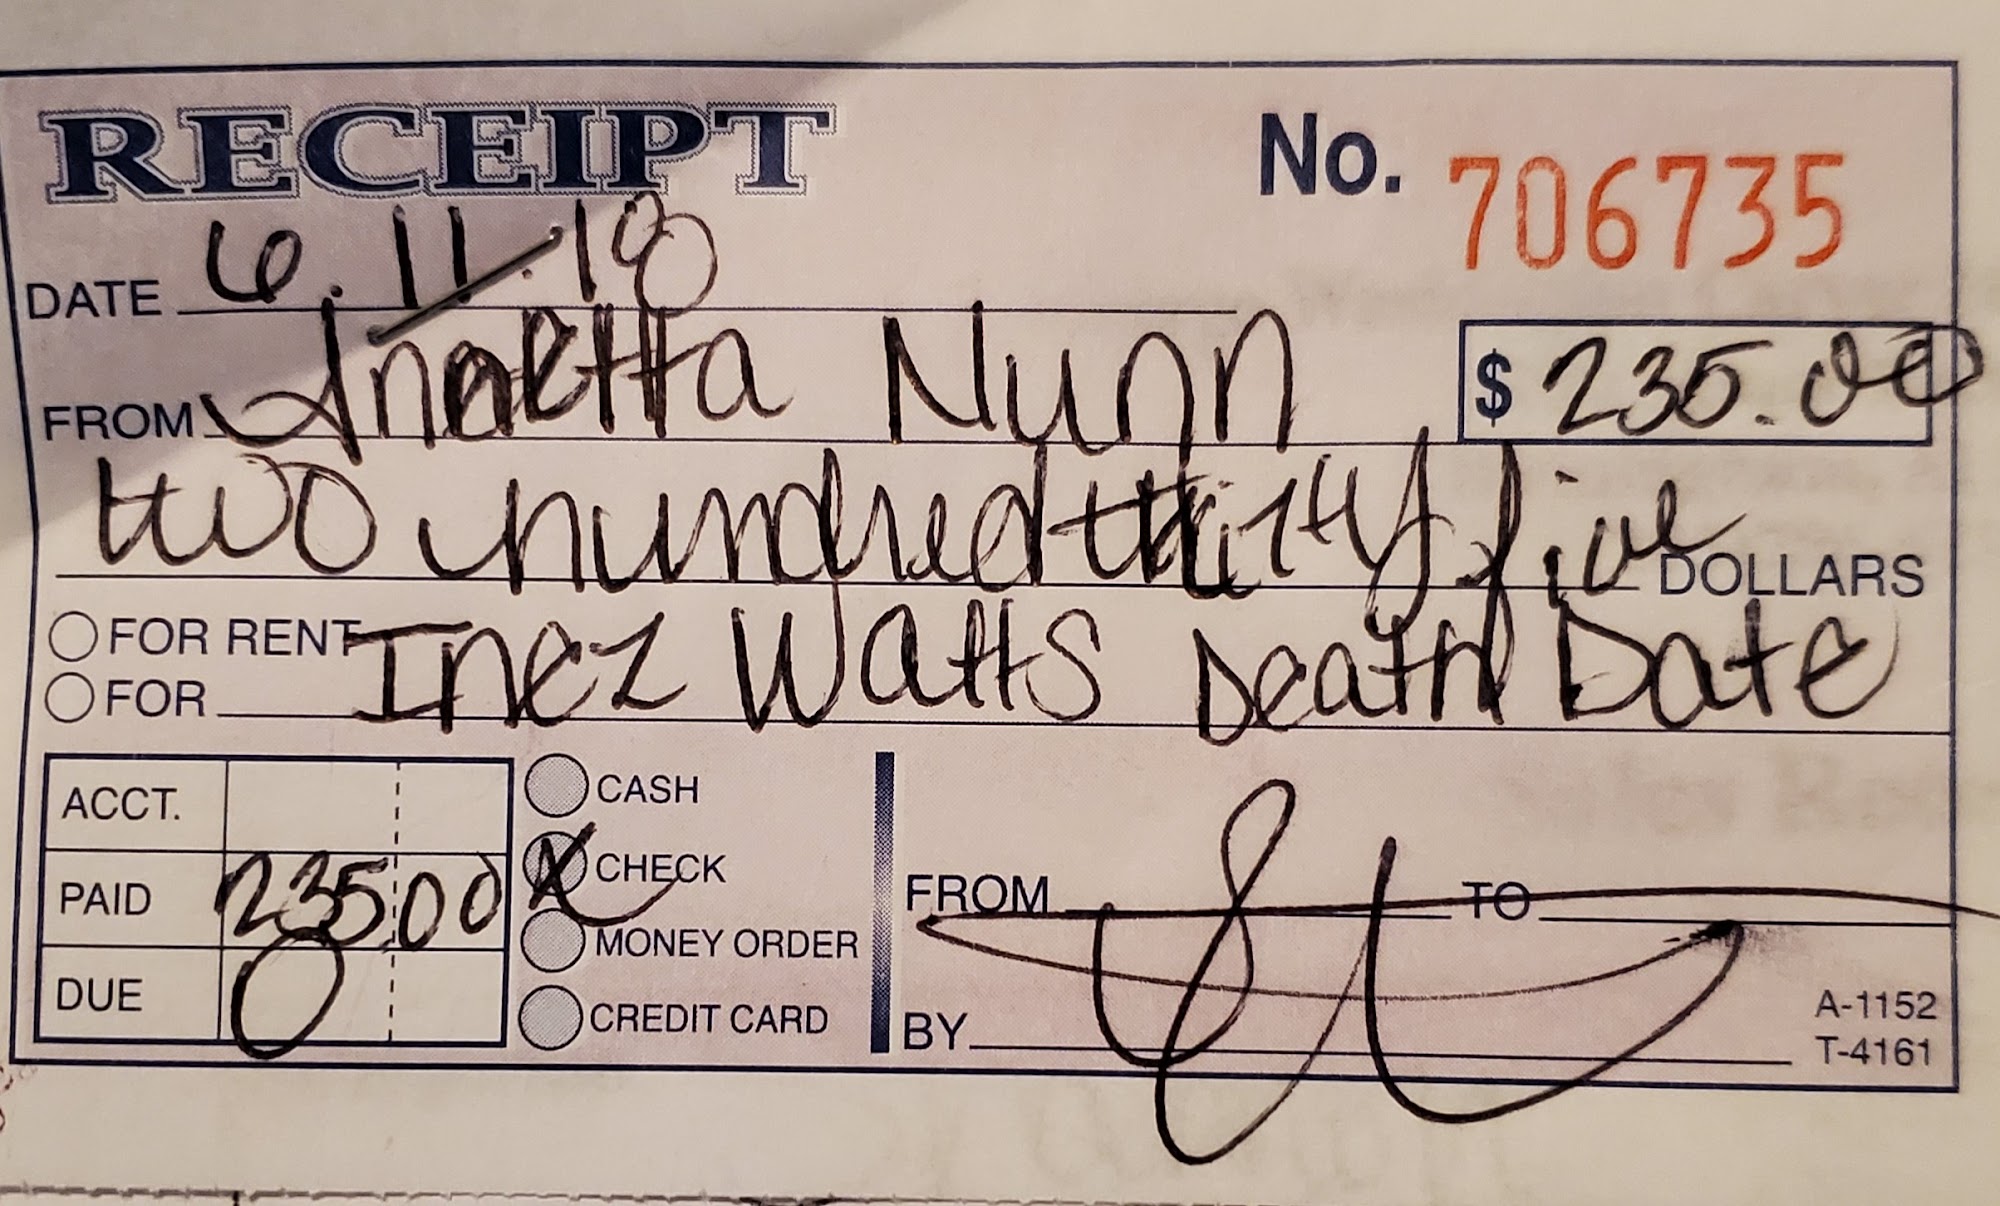 RECEIPT No. 706735
DATE 6.11.18
FROM Annetta Nunn $ 235.00
two hundred thirty five DOLLARS
FOR RENT
FOR Inez Watts Death Date
ACCT.
PAID 235 00
DUE 0
CASH
CHECK
MONEY ORDER
CREDIT CARD
FROM TO
BY
A-1152
T-4161